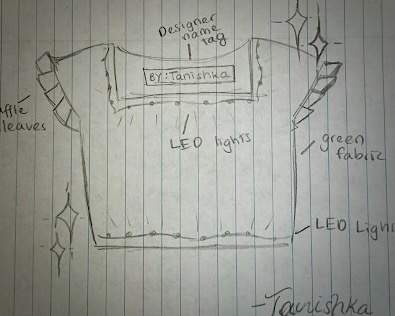 Designer
name
tag
BY: Tanishka
ruffle
sleeves
LED lights
green
fabric
LED Lights
-Tanishka